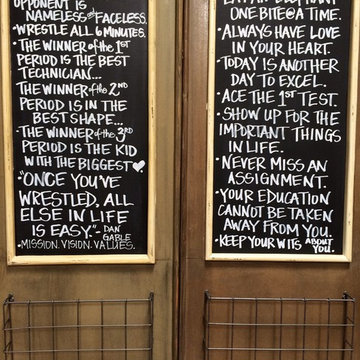 OPPONENT IS
NAMELESS & FACELESS.
• WRESTLE ALL 6 MINUTES.
• THE WINNER of the 1ST
PERIOD IS THE BEST
TECHNICIAN...
• THE WINNER of the 2ND
PERIOD IS IN THE
BEST SHAPE...
• THE WINNER of the 3RD
PERIOD IS THE KID
WITH THE BIGGEST ♥.
• "ONCE YOU'VE
WRESTLED, ALL
ELSE IN LIFE
IS EASY." - DAN GABLE
• MISSION. VISION. VALUES.
EAT AN ELEPHANT
ONE BITE @ A TIME.
• ALWAYS HAVE LOVE
IN YOUR HEART.
• TODAY IS ANOTHER
DAY TO EXCEL.
• ACE THE 1ST TEST.
• SHOW UP FOR THE
IMPORTANT THINGS
IN LIFE.
• NEVER MISS AN
ASSIGNMENT.
• YOUR EDUCATION
CANNOT BE TAKEN
AWAY FROM YOU.
• KEEP YOUR WITS ABOUT YOU.